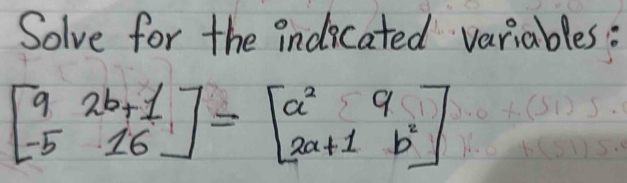 Solve for the indicated variables:
[9 2b+1] = [a² 9]
[-5 16] [2a+1 b²]